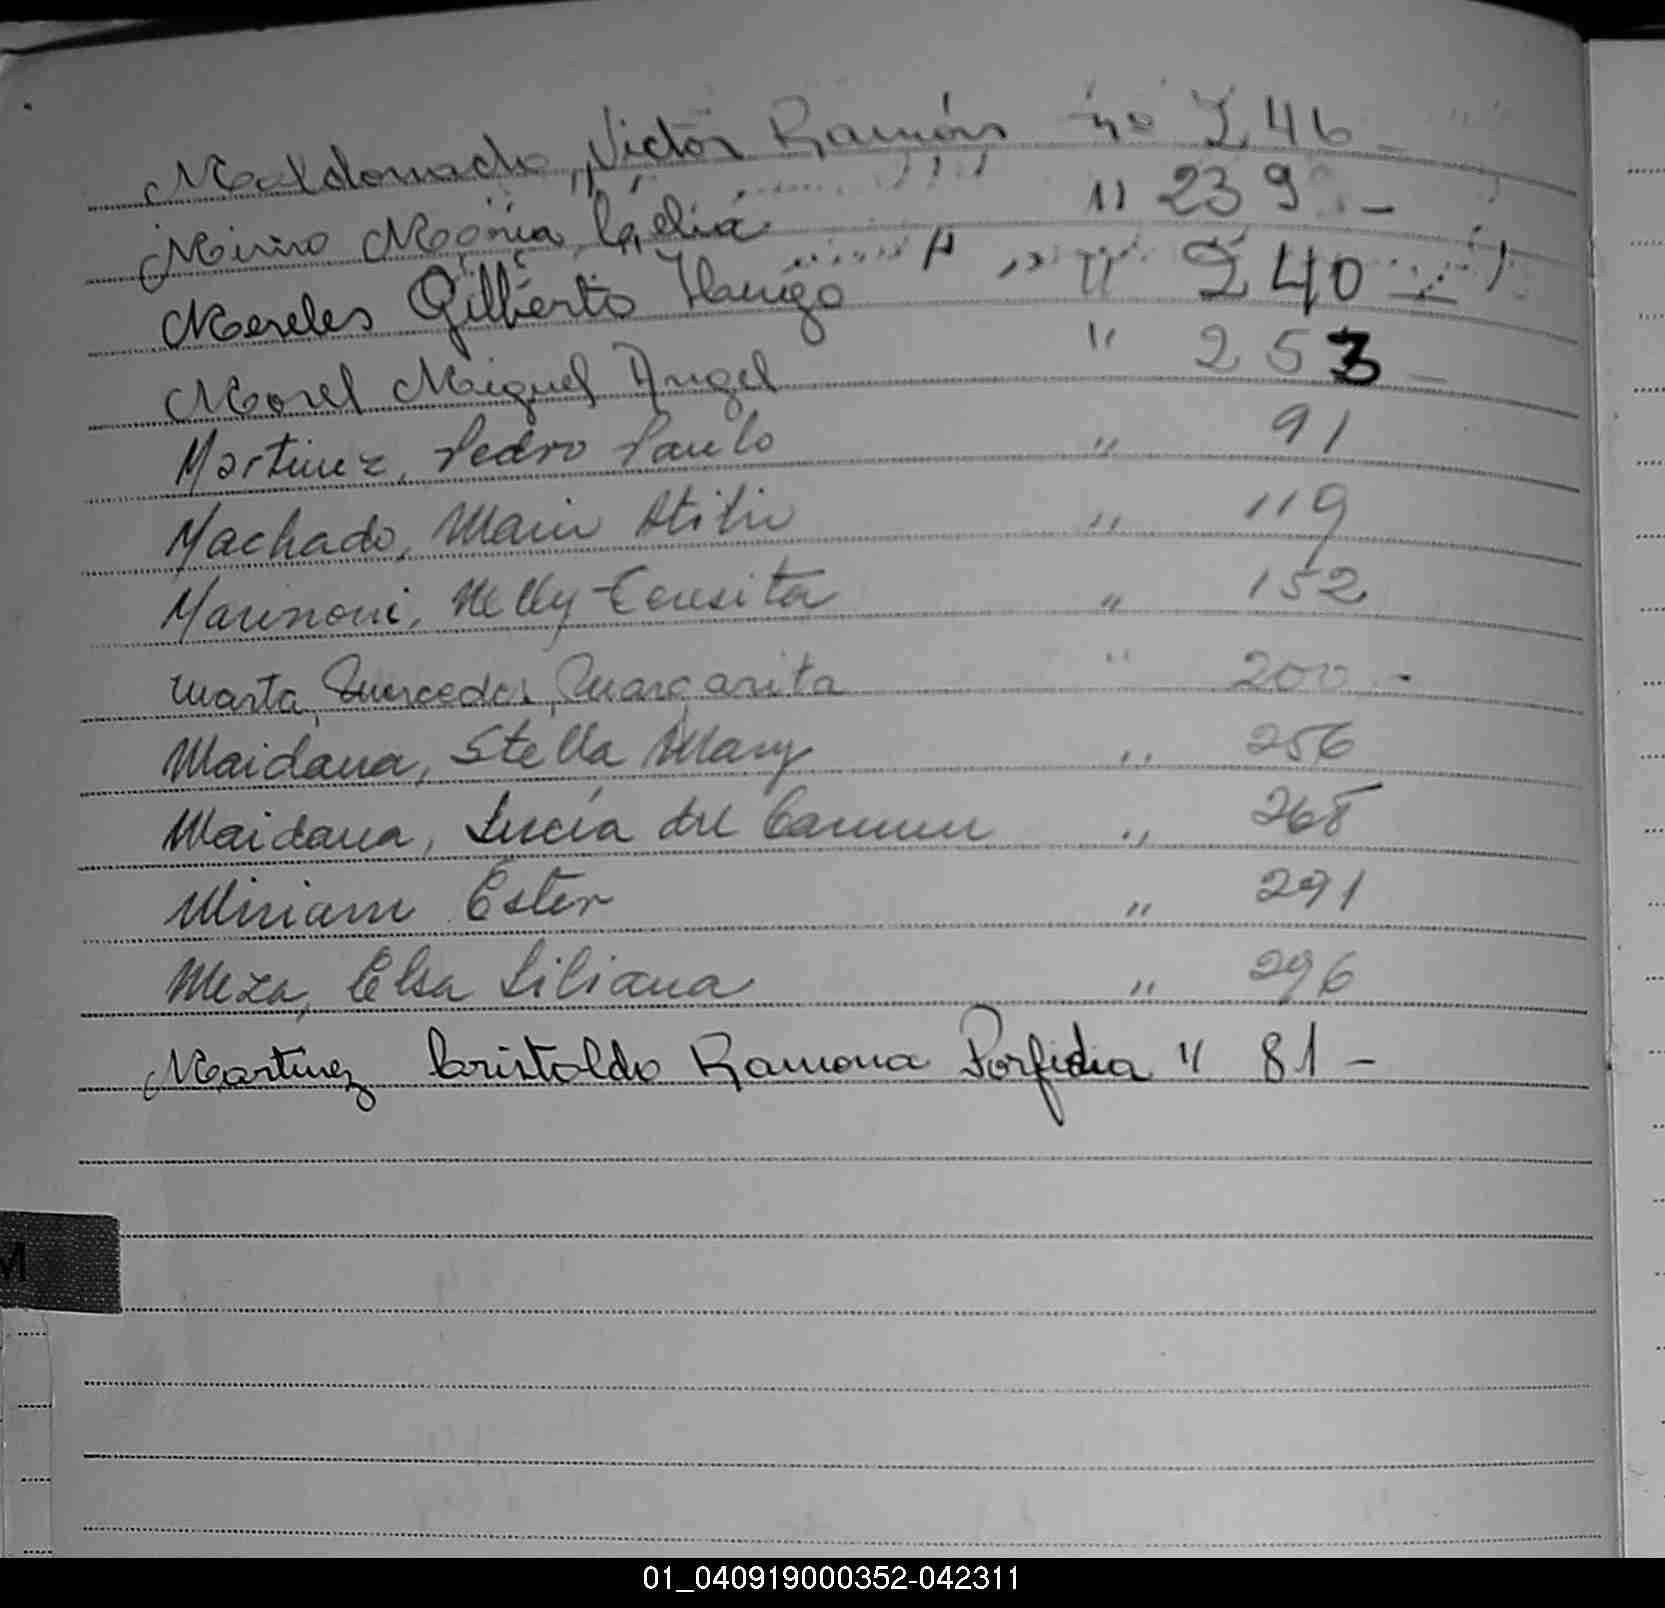 Maldonado, Victor Ramón nº 246 -
Mirno María Celia " 239 -
Mereles Gilberto Hugo " 240 -
Morel Miguel Angel " 253 -
Martinez, Pedro Paulo " 91
Machado, Atilio " 119
Marinoni, Nelly Teresita " 152
Marta, Mercedes, Margarita " 200 -
Maidana, Stella Mary " 256
Maidana, Lucía del Carmen " 268
Miriam Ester " 291
Meza, Elsa Liliana " 296
Martinez Cristaldo Ramona Porfidia " 81 -
M
01_040919000352-042311